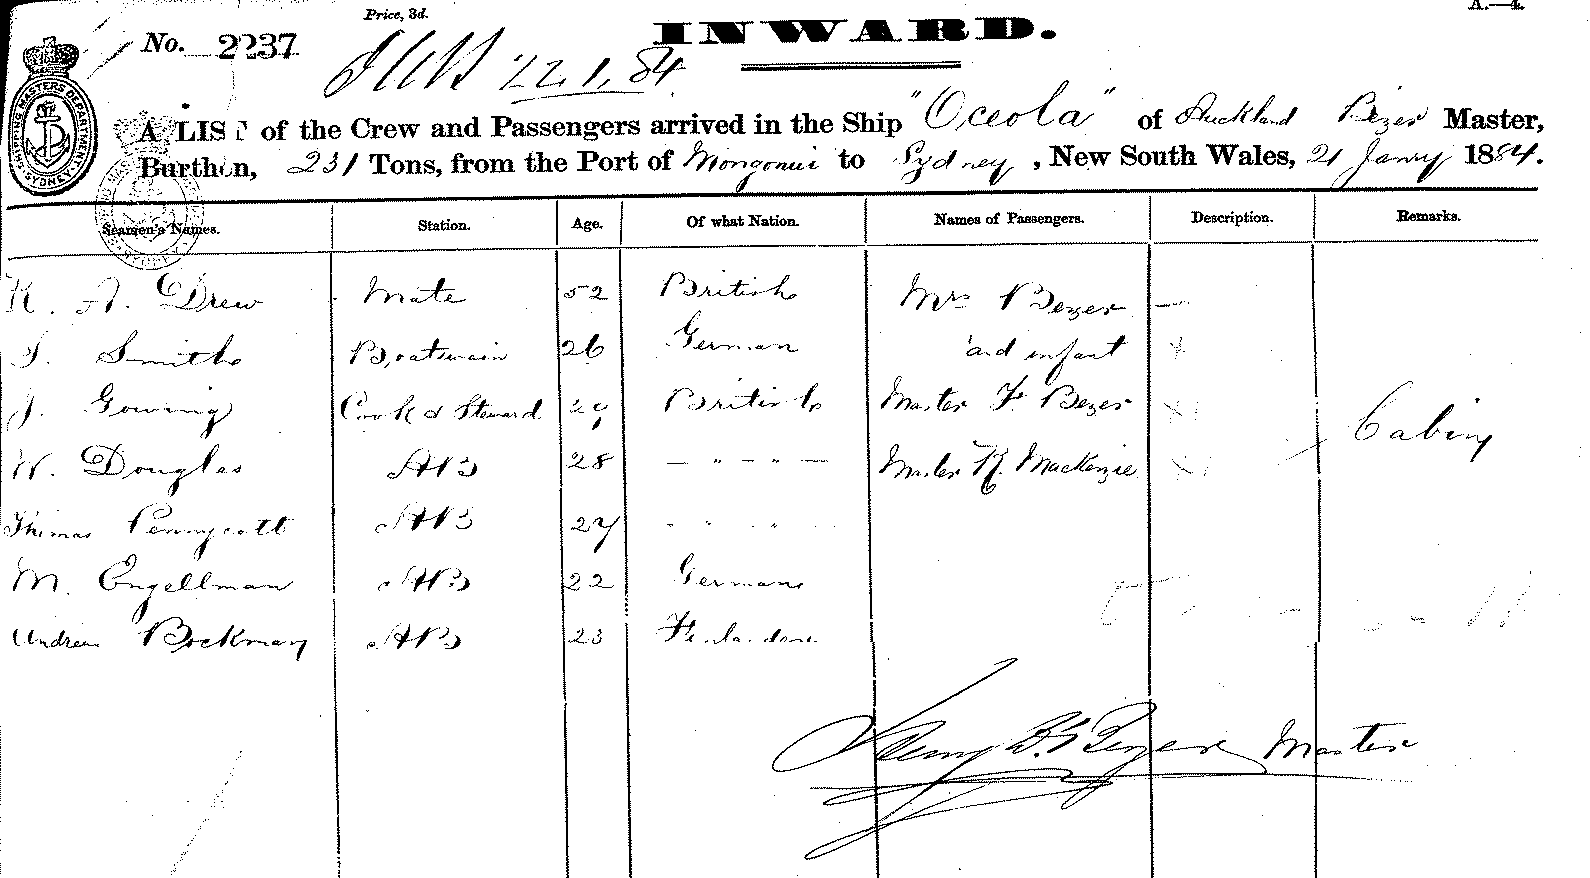 Price, 3d.
A.—4.
INWARD.
No. 2237
22.1.84
A LIST of the Crew and Passengers arrived in the Ship "Oceola" of Auckland Bezer Master,
Burthen, 231 Tons, from the Port of Mongonui to Sydney, New South Wales, 21 Janry 1884.
SHIPPING MASTERS DEPARTMENT SYDNEY
Seamen's Names. Station. Age. Of what Nation. Names of Passengers. Description. Remarks.
K. A. Drew Mate 52 British Mrs Bezer —
J. Smith Boatswain 26 German and infant x
J. Gowing Cook & Steward 29 British Master F. Bezer x
W. Douglas AB 28 — " — " — Master R. Mackenzie x Cabin
Thomas Pennycott AB 27 " " "
M. Engellman AB 22 German
Andrew Bockman AB 23
Henry Bezer Master